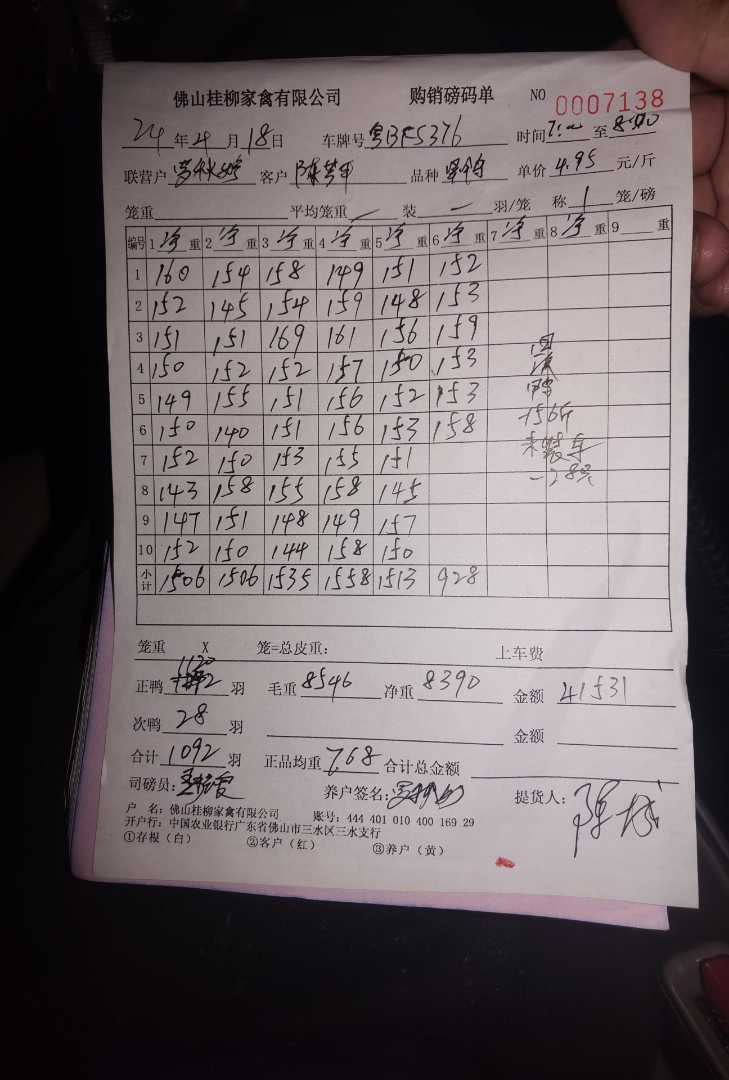 佛山桂柳家禽有限公司 购销磅码单 NO 0007138
24年4月18日 车牌号 粤BF5376 时间 7:00 至 8:50
联营户 客户 品种 单价 4.95 元/斤
笼重 平均笼重 — 装 — 羽/笼 称 1 笼/磅
编号 1 净 重 2 净 重 3 净 重 4 净 重 5 净 重 6 净 重 7 净 重 8 净 重 9 重
1 160 154 158 149 151 152
2 152 145 154 159 148 153
3 151 151 169 161 156 159
4 150 152 152 157 150 153
5 149 155 151 156 152 153
6 150 140 151 156 153 158
7 152 150 153 155 151
8 143 158 155 158 145
9 147 151 148 149 157
10 152 150 144 158 150
小计 1506 1506 1535 1558 1513 928
156斤
未装车
-28只
笼重 X 笼=总皮重: 上车费
正鸭 1120 羽 毛重 8546 净重 8390 金额 41531
次鸭 28 羽 金额
合计 1092 羽 正品均重 7.68 合计总金额
司磅员: 养户签名: 提货人:
户 名: 佛山桂柳家禽有限公司 账号: 444 401 010 400 169 29
开户行: 中国农业银行广东省佛山市三水区三水支行
①存根(白) ②客户(红) ③养户(黄)